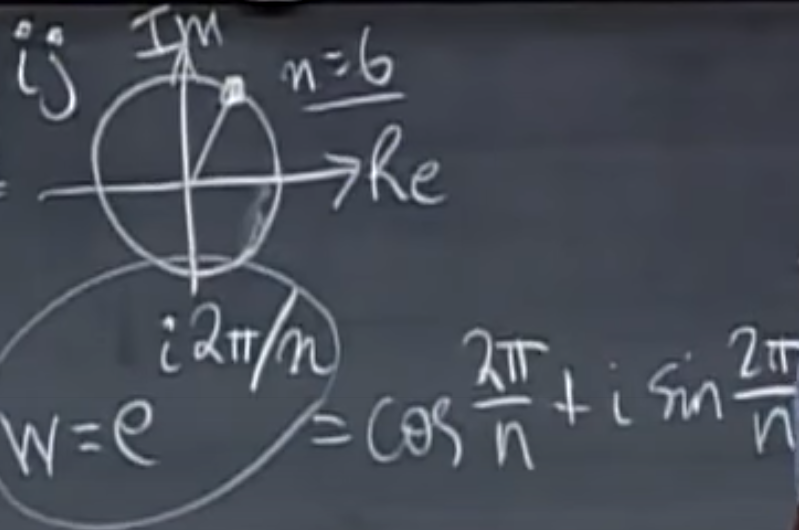 ij
Im
n=6
Re
w=e^{i2π/n} = cos 2π/n + i sin 2π/n